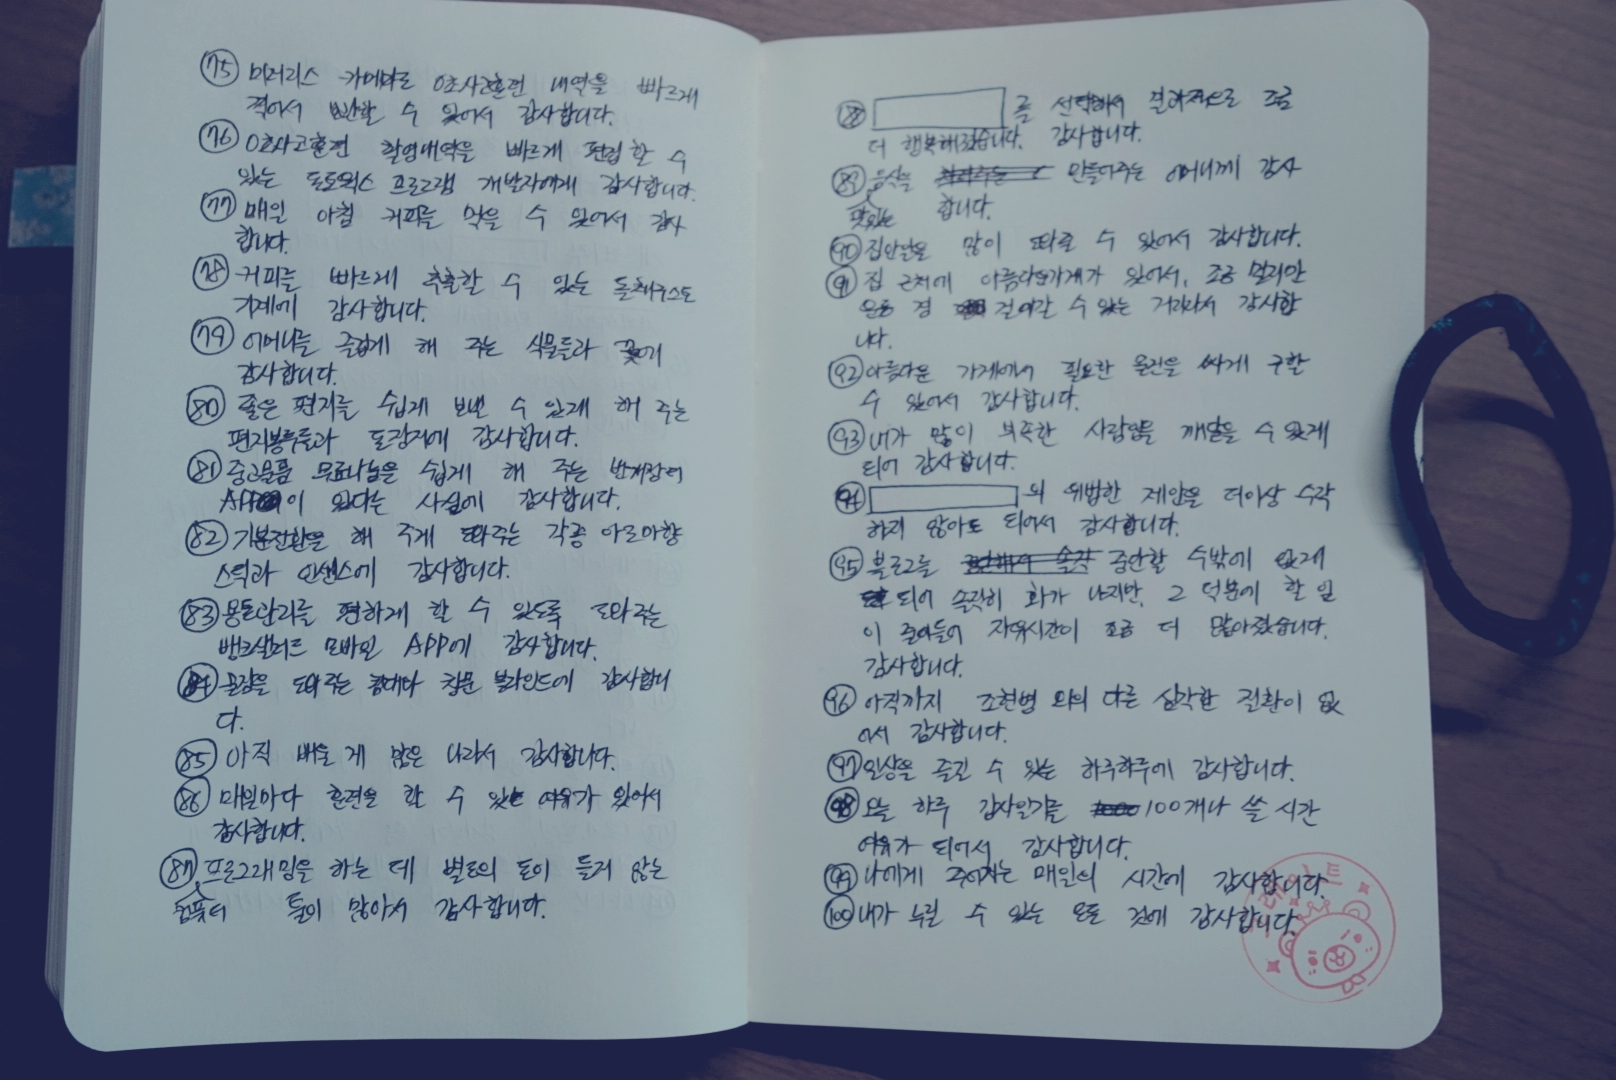 75 미러리스 카메라로 0초사고훈련 내역을 빠르게
찍어서 보관할 수 있어서 감사합니다.
76 0초사고훈련 촬영내역을 빠르게 편집할 수
있는 포토웍스 프로그램 개발자에게 감사합니다.
77 매일 아침 커피를 먹을 수 있어서 감사
합니다.
78 커피를 빠르게 추출할 수 있는 돌체구스토
기계에 감사합니다.
79 어머니를 즐겁게 해 주는 식물들과 꽃에
감사합니다.
80 좋은 편지를 쉽게 보낼 수 있게 해 주는
편지봉투들과 도장에 감사합니다.
81 중고물품 무료나눔을 쉽게 해 주는
APP이 있다는 사실에 감사합니다.
82 기분전환을 해 주게 도와주는 각종 아로마향
스틱과 인센스에 감사합니다.
83 용돈관리를 편하게 할 수 있도록 도와주는
뱅크샐러드 모바일 APP에 감사합니다.
84 꿀잠을 도와주는 창문 블라인드에 감사합니
다.
85 아직 배울 게 많은 나라서 감사합니다.
86 매일마다 훈련을 할 수 있는 여유가 있어서
감사합니다.
87 프로그래밍을 하는 데 별도의 돈이 들지 않는
컴퓨터 툴이 많아서 감사합니다.
88 를 선택해서 결과적으로 조금
더 행복해졌습니다. 감사합니다.
89 음식을 만들어주는 어머니께 감사
맛있는 합니다.
90 집안일을 많이 도와줄 수 있어서 감사합니다.
91 집 근처에 아름다운가게가 있어서, 조금 멀지만
운동 겸 걸어갈 수 있는 거리라서 감사합
니다.
92 아름다운 가게에서 필요한 물건을 싸게 구할
수 있어서 감사합니다.
93 내가 많이 부족한 사람임을 깨달을 수 있게
되어 감사합니다.
94 의 위법한 제안을 더이상 수락
하지 않아도 되어서 감사합니다.
95 블로그를 중단할 수밖에 없게
되어 솔직히 화가 나지만, 그 덕분에 할 일
이 줄어들어 자유시간이 조금 더 많아졌습니다.
감사합니다.
96 아직까지 조현병 외의 다른 심각한 질환이 없
어서 감사합니다.
97 일상을 즐길 수 있는 하루하루에 감사합니다.
98 오늘 하루 감사일기를 100개나 쓸 시간
여유가 되어서 감사합니다.
99 나에게 주어지는 매일의 시간에 감사합니다.
100 내가 누릴 수 있는 모든 것에 감사합니다.